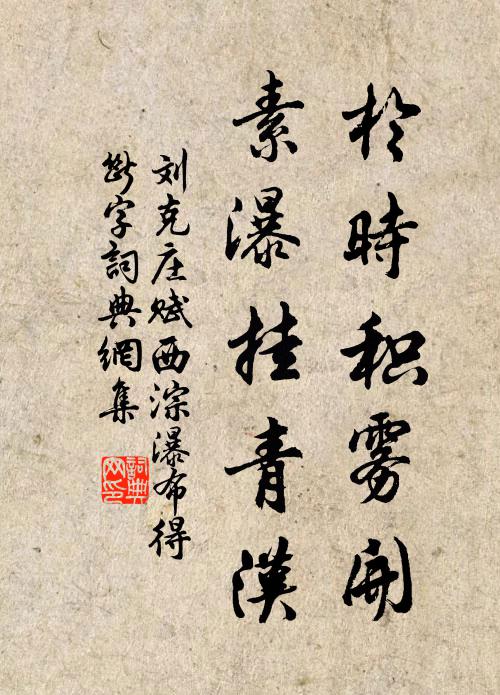 於時积雾開
素瀑挂青漢
刘克庄赋西淙瀑布得
断字詞典網集
詞典
网印